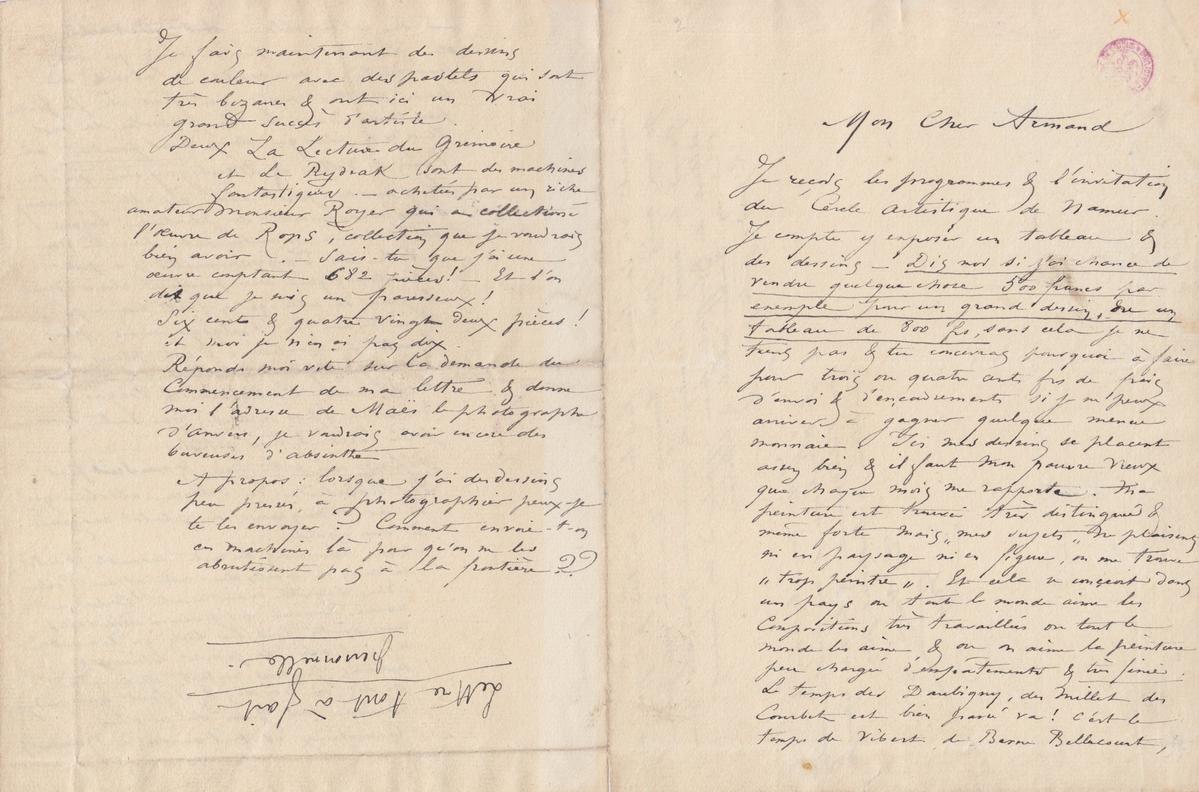 Mon Cher Armand
Je reçois les programmes & l'invitation
du Cercle artistique de Namur.
Je compte y exposer un tableau &
des dessins – Dis moi si j'ai chance de
vendre quelque chose 500 francs par
exemple pour un grand dessin, ou un
tableau de 800 frs, sans cela je ne
tiens pas & tu concevras pourquoi à faire
pour trois ou quatre cents frs de frais
d'envoi & d'encadrements si je ne peux
arriver à gagner quelque menue
monnaie. Ici mes dessins se placent
assez bien & il faut mon pauvre vieux
que chaque mois me rapporte. Ma
peinture est trouvée très distinguée &
même forte mais „mes sujets„ ne plaisent
ni en paysage ni en figure, on me trouve
„trop peintre„. Et cela se conçoit dans
un pays ou tout le monde aime les
Compositions très travaillées ou tout le
monde les aime & ou on aime la peinture
peu chargée d'empatements & très finie.
Le temps des Daubigny, des Millet des
Courbet est bien passé va! c'est le
temps de Vibert, de Berne Bellecourt,
Je fais maintenant des dessins
de couleur avec des pastels qui sont
très bizares & ont ici un vrai
grand succès d'artiste.
Deux La Lecture du Grimoire
et Le Rydeak sont des machines
fantastiques – achetés par un riche
amateur Monsieur Royer qui a collectionné
l'œuvre de Rops, collection que je voudrais
bien avoir. – Sais-tu que j'ai une
œuvre comptant 682 pièces! – Et l'on
dit que je suis un paresseux!
Six cents & quatre vingt deux pièces!
et moi je n'en ai pas dix.
Réponds moi vite sur la demande du
Commencement de ma lettre & donne
moi l'adresse de Maës le photographe
d'Anvers, je voudrais avoir encore des
buveuses d'absinthe
A propos: lorsque j'ai des dessins
peu pressés, à photographier peux-je
te les envoyer? Comment envoie-t-on
ces machines là pour qu'on ne les
abrutissent pas à la frontière??
Lettre tout à fait
personnelle.